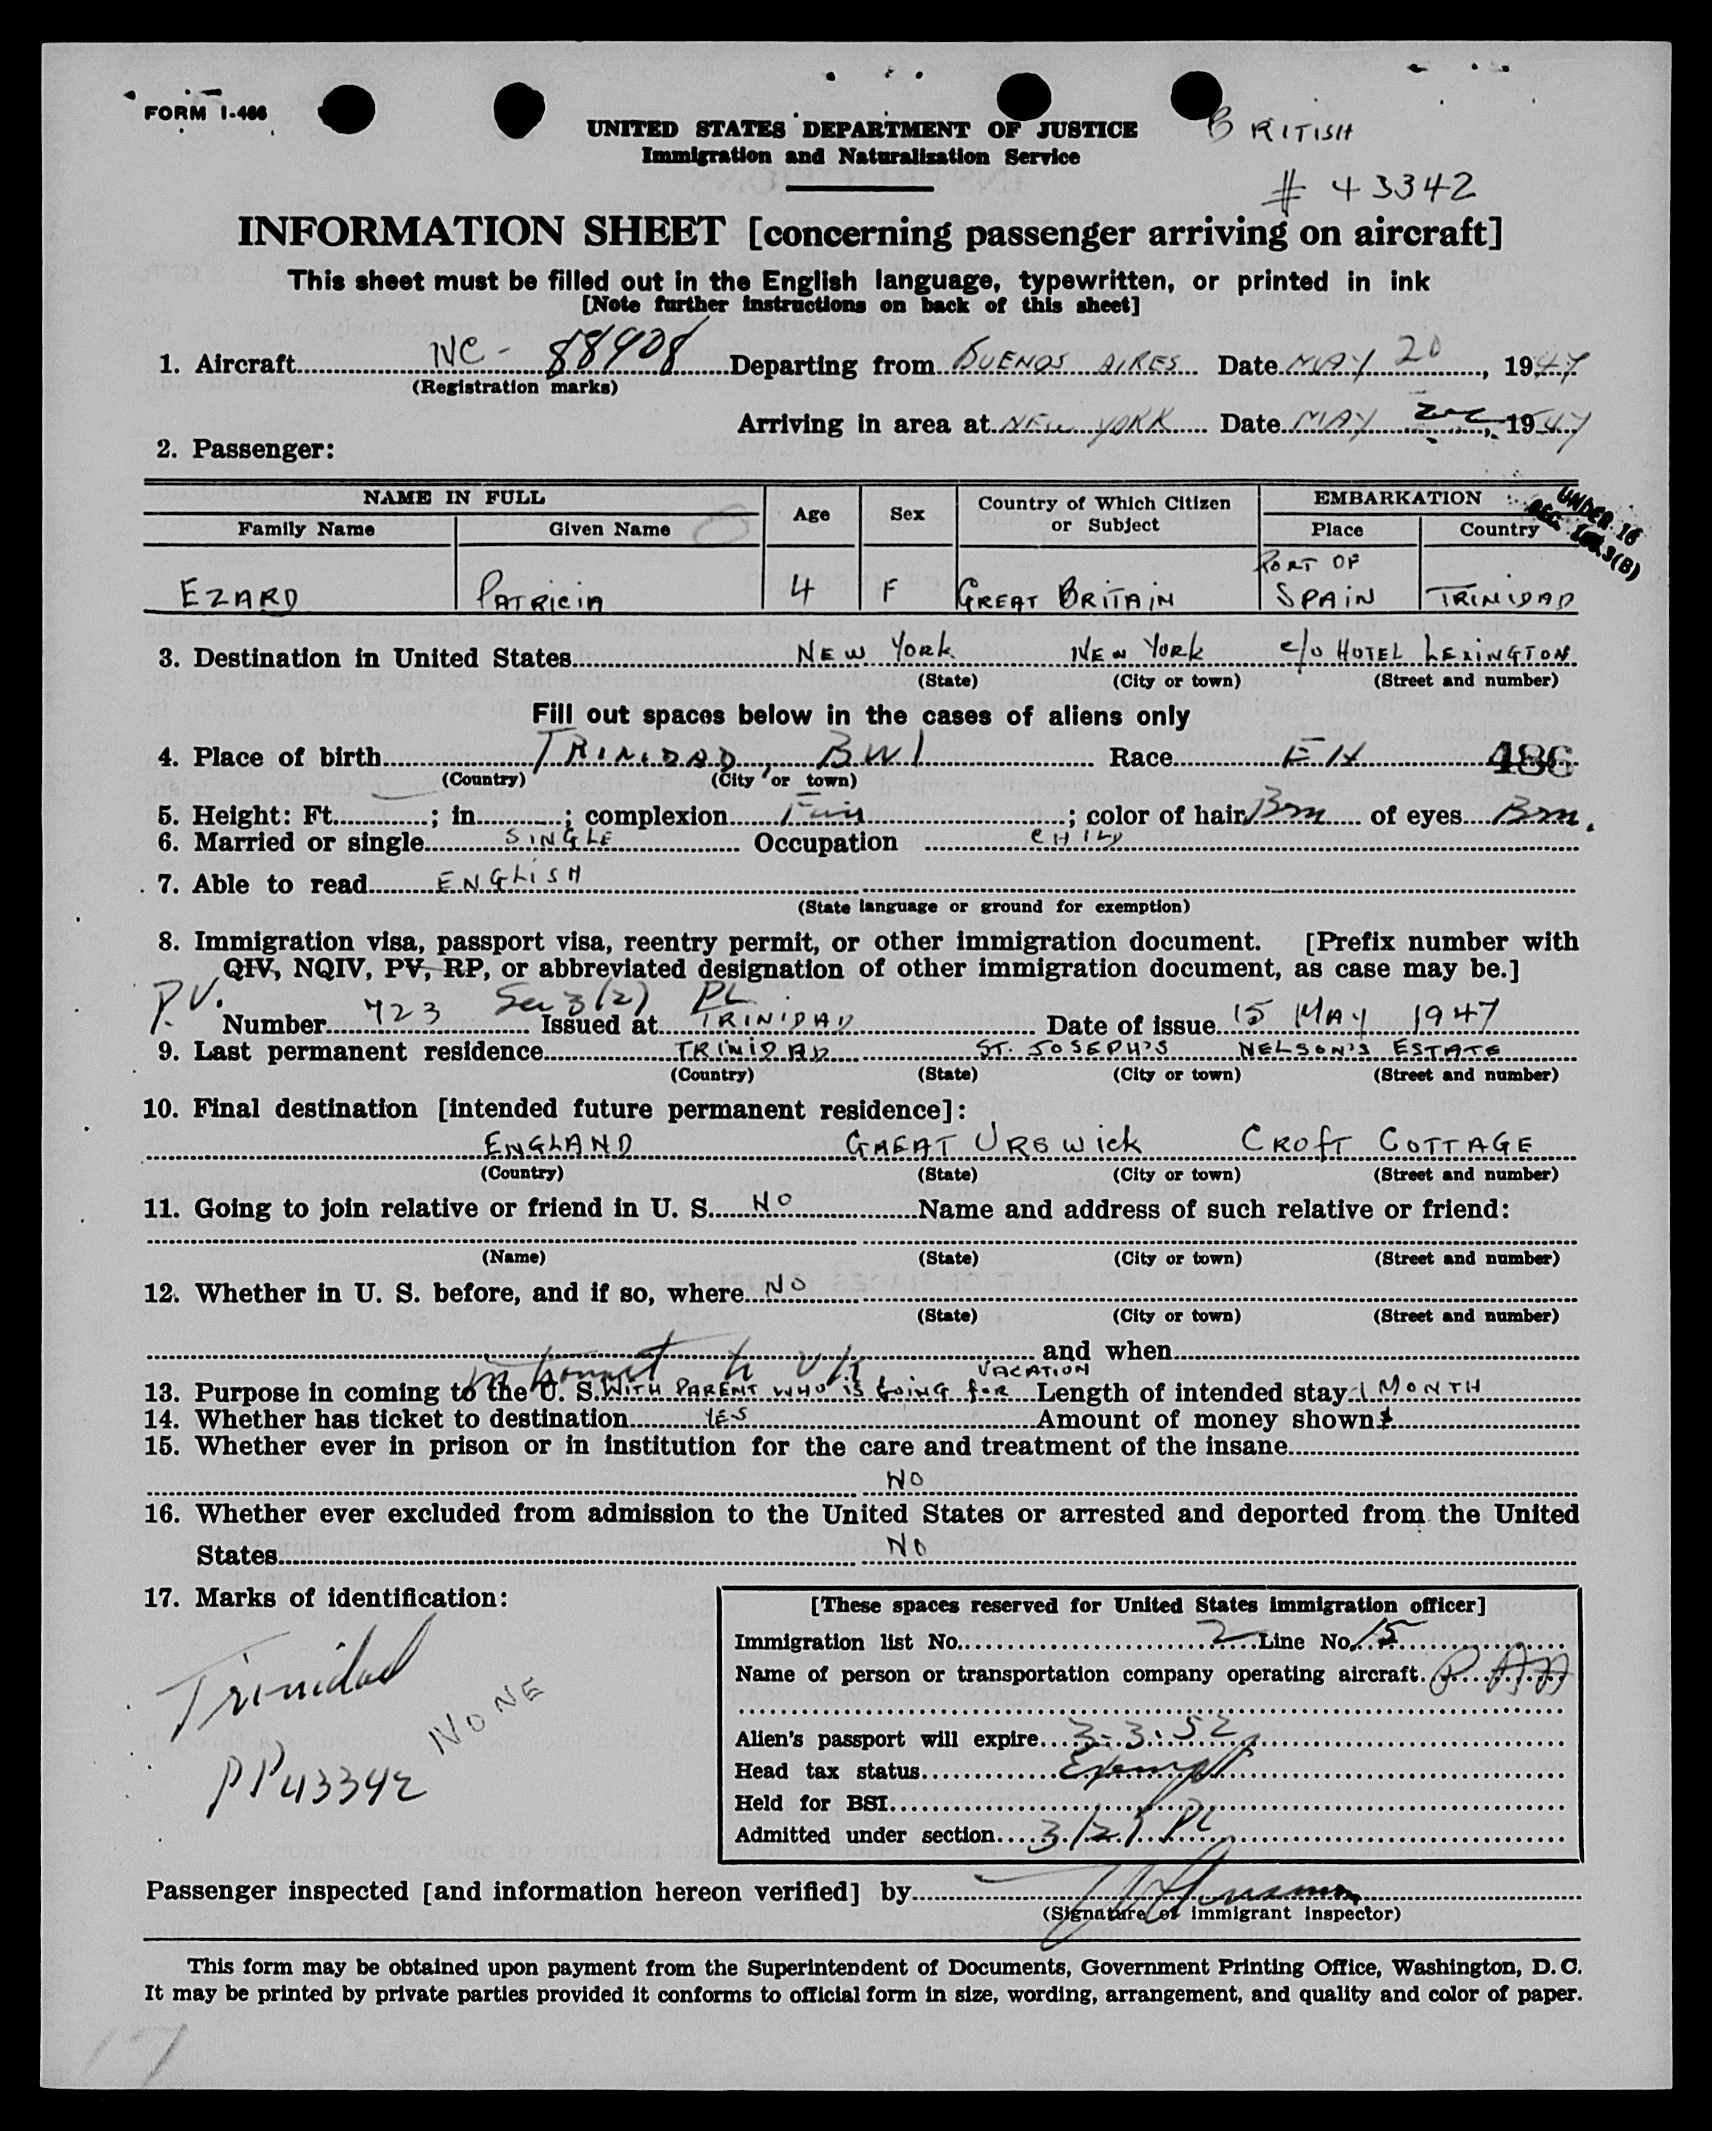 FORM I-466
UNITED STATES DEPARTMENT OF JUSTICE
Immigration and Naturalization Service
BRITISH
# 43342
INFORMATION SHEET [concerning passenger arriving on aircraft]
This sheet must be filled out in the English language, typewritten, or printed in ink
[Note further instructions on back of this sheet]
1. Aircraft NC - 88908 Departing from BUENOS AIRES Date MAY 20, 1947
(Registration marks)
Arriving in area at NEW YORK Date MAY, 1947
2. Passenger:
NAME IN FULL Age Sex Country of Which Citizen or Subject EMBARKATION
Family Name Given Name Place Country
UNDER 16
EZARD PATRICIA 4 F GREAT BRITAIN PORT OF SPAIN TRINIDAD
3. Destination in United States NEW YORK NEW YORK c/o HOTEL LEXINGTON
(State) (City or town) (Street and number)
Fill out spaces below in the cases of aliens only
4. Place of birth TRINIDAD, BWI Race EN 486
(Country) (City or town)
5. Height: Ft. ; in. ; complexion Fair ; color of hair Brn of eyes Brn.
6. Married or single SINGLE Occupation CHILD
7. Able to read ENGLISH
(State language or ground for exemption)
8. Immigration visa, passport visa, reentry permit, or other immigration document. [Prefix number with
QIV, NQIV, PV, RP, or abbreviated designation of other immigration document, as case may be.]
P.V. Sec 3(2) PL
Number 723 Issued at TRINIDAD Date of issue 15 MAY 1947
9. Last permanent residence TRINIDAD ST. JOSEPH'S NELSON'S ESTATE
(Country) (State) (City or town) (Street and number)
10. Final destination [intended future permanent residence]:
ENGLAND GREAT URSWICK CROFT COTTAGE
(Country) (State) (City or town) (Street and number)
11. Going to join relative or friend in U. S. NO Name and address of such relative or friend:
(Name) (State) (City or town) (Street and number)
12. Whether in U. S. before, and if so, where NO
(State) (City or town) (Street and number)
and when
in transit to UK
13. Purpose in coming to the U. S. WITH PARENT WHO IS GOING FOR VACATION Length of intended stay 1 MONTH
14. Whether has ticket to destination YES Amount of money shown $
15. Whether ever in prison or in institution for the care and treatment of the insane
NO
16. Whether ever excluded from admission to the United States or arrested and deported from the United
States NO
17. Marks of identification:
Trinidad
NONE
PP43342
[These spaces reserved for United States immigration officer]
Immigration list No. 2 Line No. 15
Name of person or transportation company operating aircraft. PAA
Alien's passport will expire 3-3-52
Head tax status Exempt
Held for BSI
Admitted under section 3(2) PL
Passenger inspected [and information hereon verified] by
(Signature of immigrant inspector)
This form may be obtained upon payment from the Superintendent of Documents, Government Printing Office, Washington, D. C.
It may be printed by private parties provided it conforms to official form in size, wording, arrangement, and quality and color of paper.
17